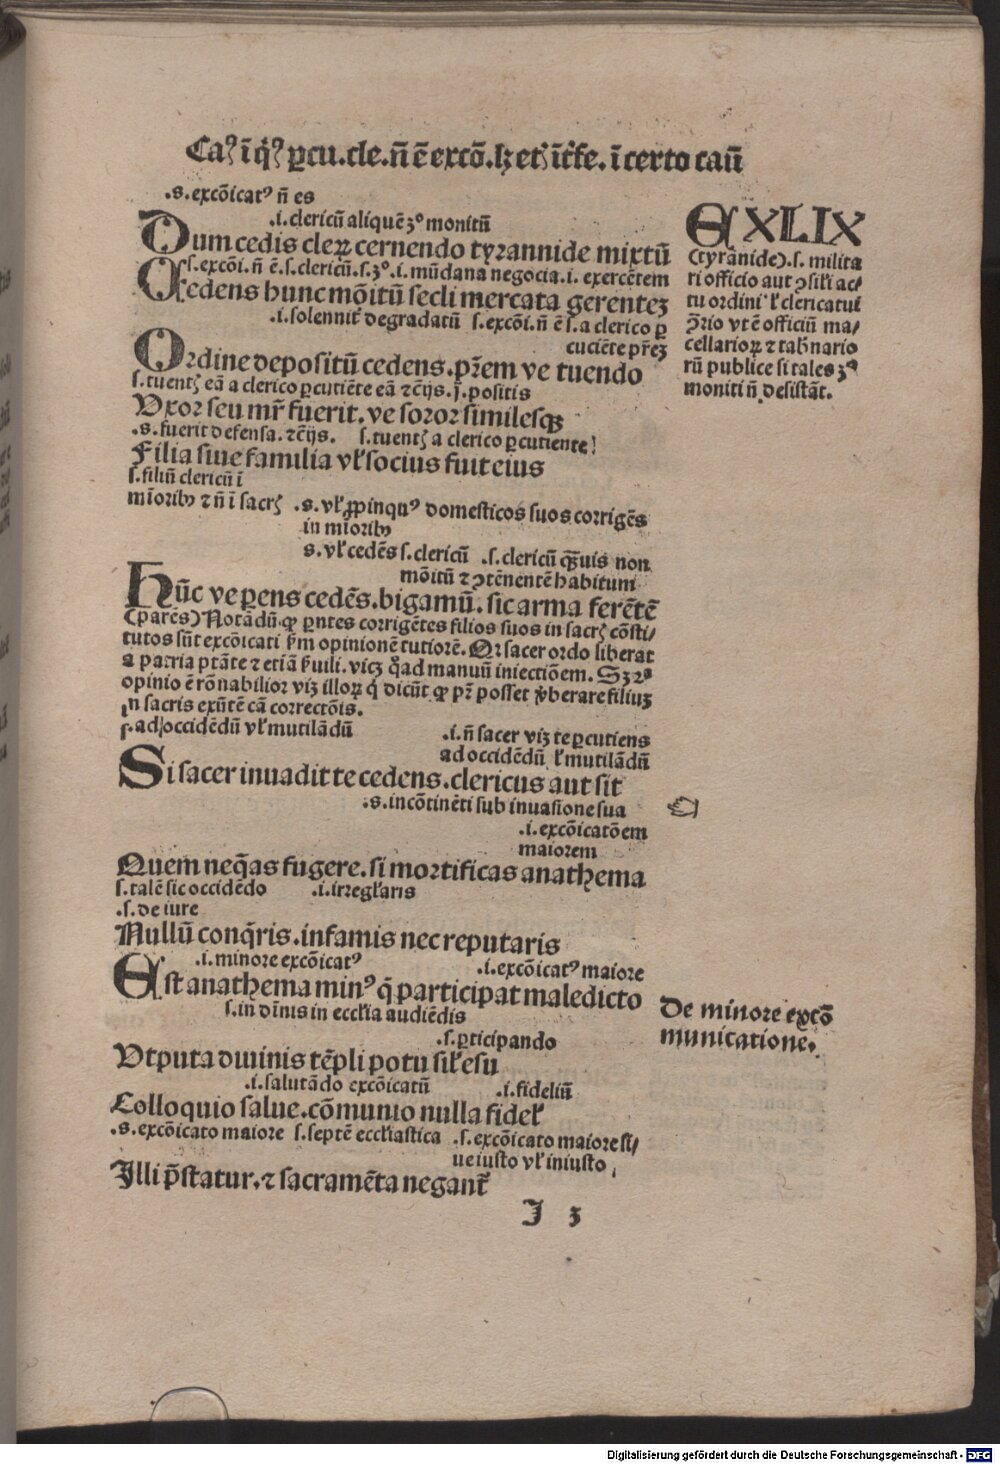 Caꝰ ī q̄ꝰ ꝑcu. cle. n̄ ē excō. lꝫ etꝭ īt̄fe. ī certo caū
.s. excōicatꝰ n̄ es
.i. clericū aliquē ꝫͦ monitū
Dum cedis cleꝝ cernendo tyrannide mixtū
s. excōi. n̄ ē. s. clericū. s. ꝫͦ. i. mūdana negocia. i. exercētem
Cedens hunc mōitū secli mercata gerenteꝫ
.i. solennit̄ degradatū s. excōi. n̄ ē s. a clerico ꝑ
cuciēte pr̄eꝫ
Ordine depositū cedens. pr̄em ve tuendo
s. tuentꝭ eā a clerico ꝑcutiēte eā ⁊c̄ijs. ī. positis
Vxor seu mr̄ fuerit. ve soror similesqꝫ
.s. fuerit defensa. ⁊c̄ijs. s. tuentꝭ a clerico ꝑcutiente
Filia siue familia vl̓ socius fuit eius
s. filiū clericū ī
mīoribꝰ ⁊ n̄ ī sacrꝭ .s. vl̓ ꝓpinquꝰ domesticos suos corrigēs
in mīoribꝰ
s. vl̓ cedēs s. clericū .s. clericū qͣꝫuis non
mōitū ⁊ ꝯtēnentē habitum
Hūc ve ꝑens cedēs. bigamū. sic arma ferētē
(parēs) Notādū qꝙ ꝑntes corrigētes filios suos in sacrꝭ cōsti/
tutos sūt excōicati ẜm opinionē tutiorē. Qr sacer ordo liberat
a patria ptāte ⁊ etiā ẜuili. vicꝫ q̄ad manuū iniectiōem. Sꝫ 2ᵃ
opinio ē rōnabilior viꝫ illoꝝ q̄ dicūt qꝙ pr̄ posset v̓berare filiuꝫ
in sacris exn̄tē cā correctōis.
s. ad occidēdū vl̓ mutilādū
.i. n̄ sacer viꝫ te ꝑcutiens
ad occidēdū l̓ mutilādū
Si sacer inuadit te cedens. clericus aut sit
.s. incōtinēti sub inuasione sua
.i. excōicatōem
maiorem
Quem neq̄as fugere. si mortificas anathema
s. talē sic occidēdo .i. irregl̓aris
.s. de iure
Nullū conq̄ris. infamis nec reputaris
.i. minore excōicatꝰ .i. excōicatꝰ maiore
Est anathema minꝰ q̄ participat maledicto
s. in dīnis in eccl̓ia audiēdis
.s. ꝑticipando
Vtputa diuinis tēpli potu sil̓ esu
.i. salutādo excōicatū .i. fideliū
Colloquio salue. cōmunio nulla fidel̓
.s. excōicato maiore s. septē eccl̓iastica .s. excōicato maiore si/
ue iusto vl̓ iniusto
Illi p̄statur. ⁊ sacramēta negant̄
I 3
C XLIX
(tyrānide) .s. milita
ri officio aut ꝯsil̓i ac/
tu ordini l̓ clericatui
ꝯrio vt ē officiū ma/
cellarioꝝ ⁊ tabn̄ario
rū publice si tales ꝫͦ
moniti n̄ desistāt.
De minore excō
municatione.
Digitalisierung gefördert durch die Deutsche Forschungsgemeinschaft - DFG